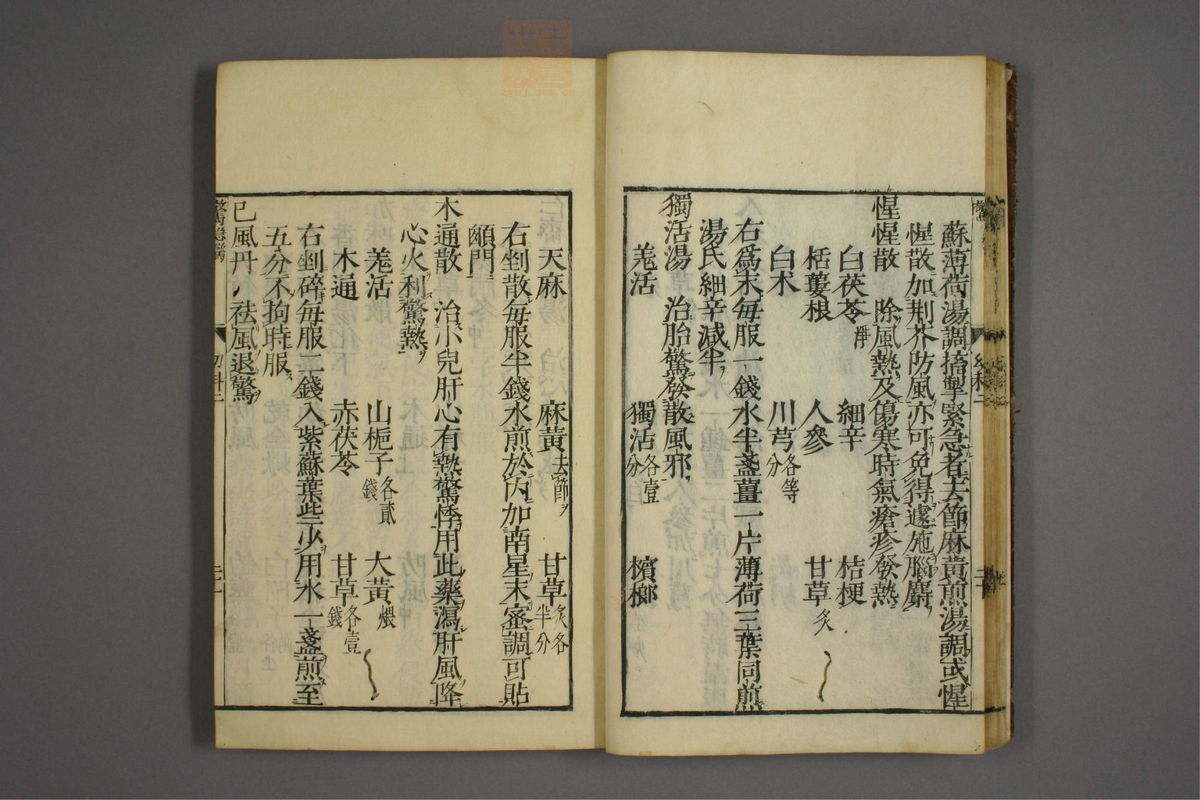 蘇薄荷湯調搐掣緊急者去節麻黃煎湯調或惺
惺散加荆芥防風亦可免得遽施腦麝
惺惺散 除風熱及傷寒時氣瘡疹發熱
白茯苓 細辛 桔梗
栝蔞根 人參 甘草炙
白术 川芎各等分
右爲末每服一錢水半盞薑一片薄荷三葉同煎
湯氏細辛減半
獨活湯 治胎驚發散風邪
羗活 獨活各壹分 檳榔
天麻 麻黃去節 甘草炙各半分
右剉散每服半錢水煎於內加南星末蜜調可貼
顖門
木通散 治小兒肝心有熱驚悸用此藥瀉肝風降
心火利驚熱
羗活 山梔子各貳錢 大黃煨
木通 赤茯苓 甘草各壹錢
右剉碎每服二錢入紫蘇葉些少用水一盞煎至
五分不拘時服
巳風丹 祛風退驚